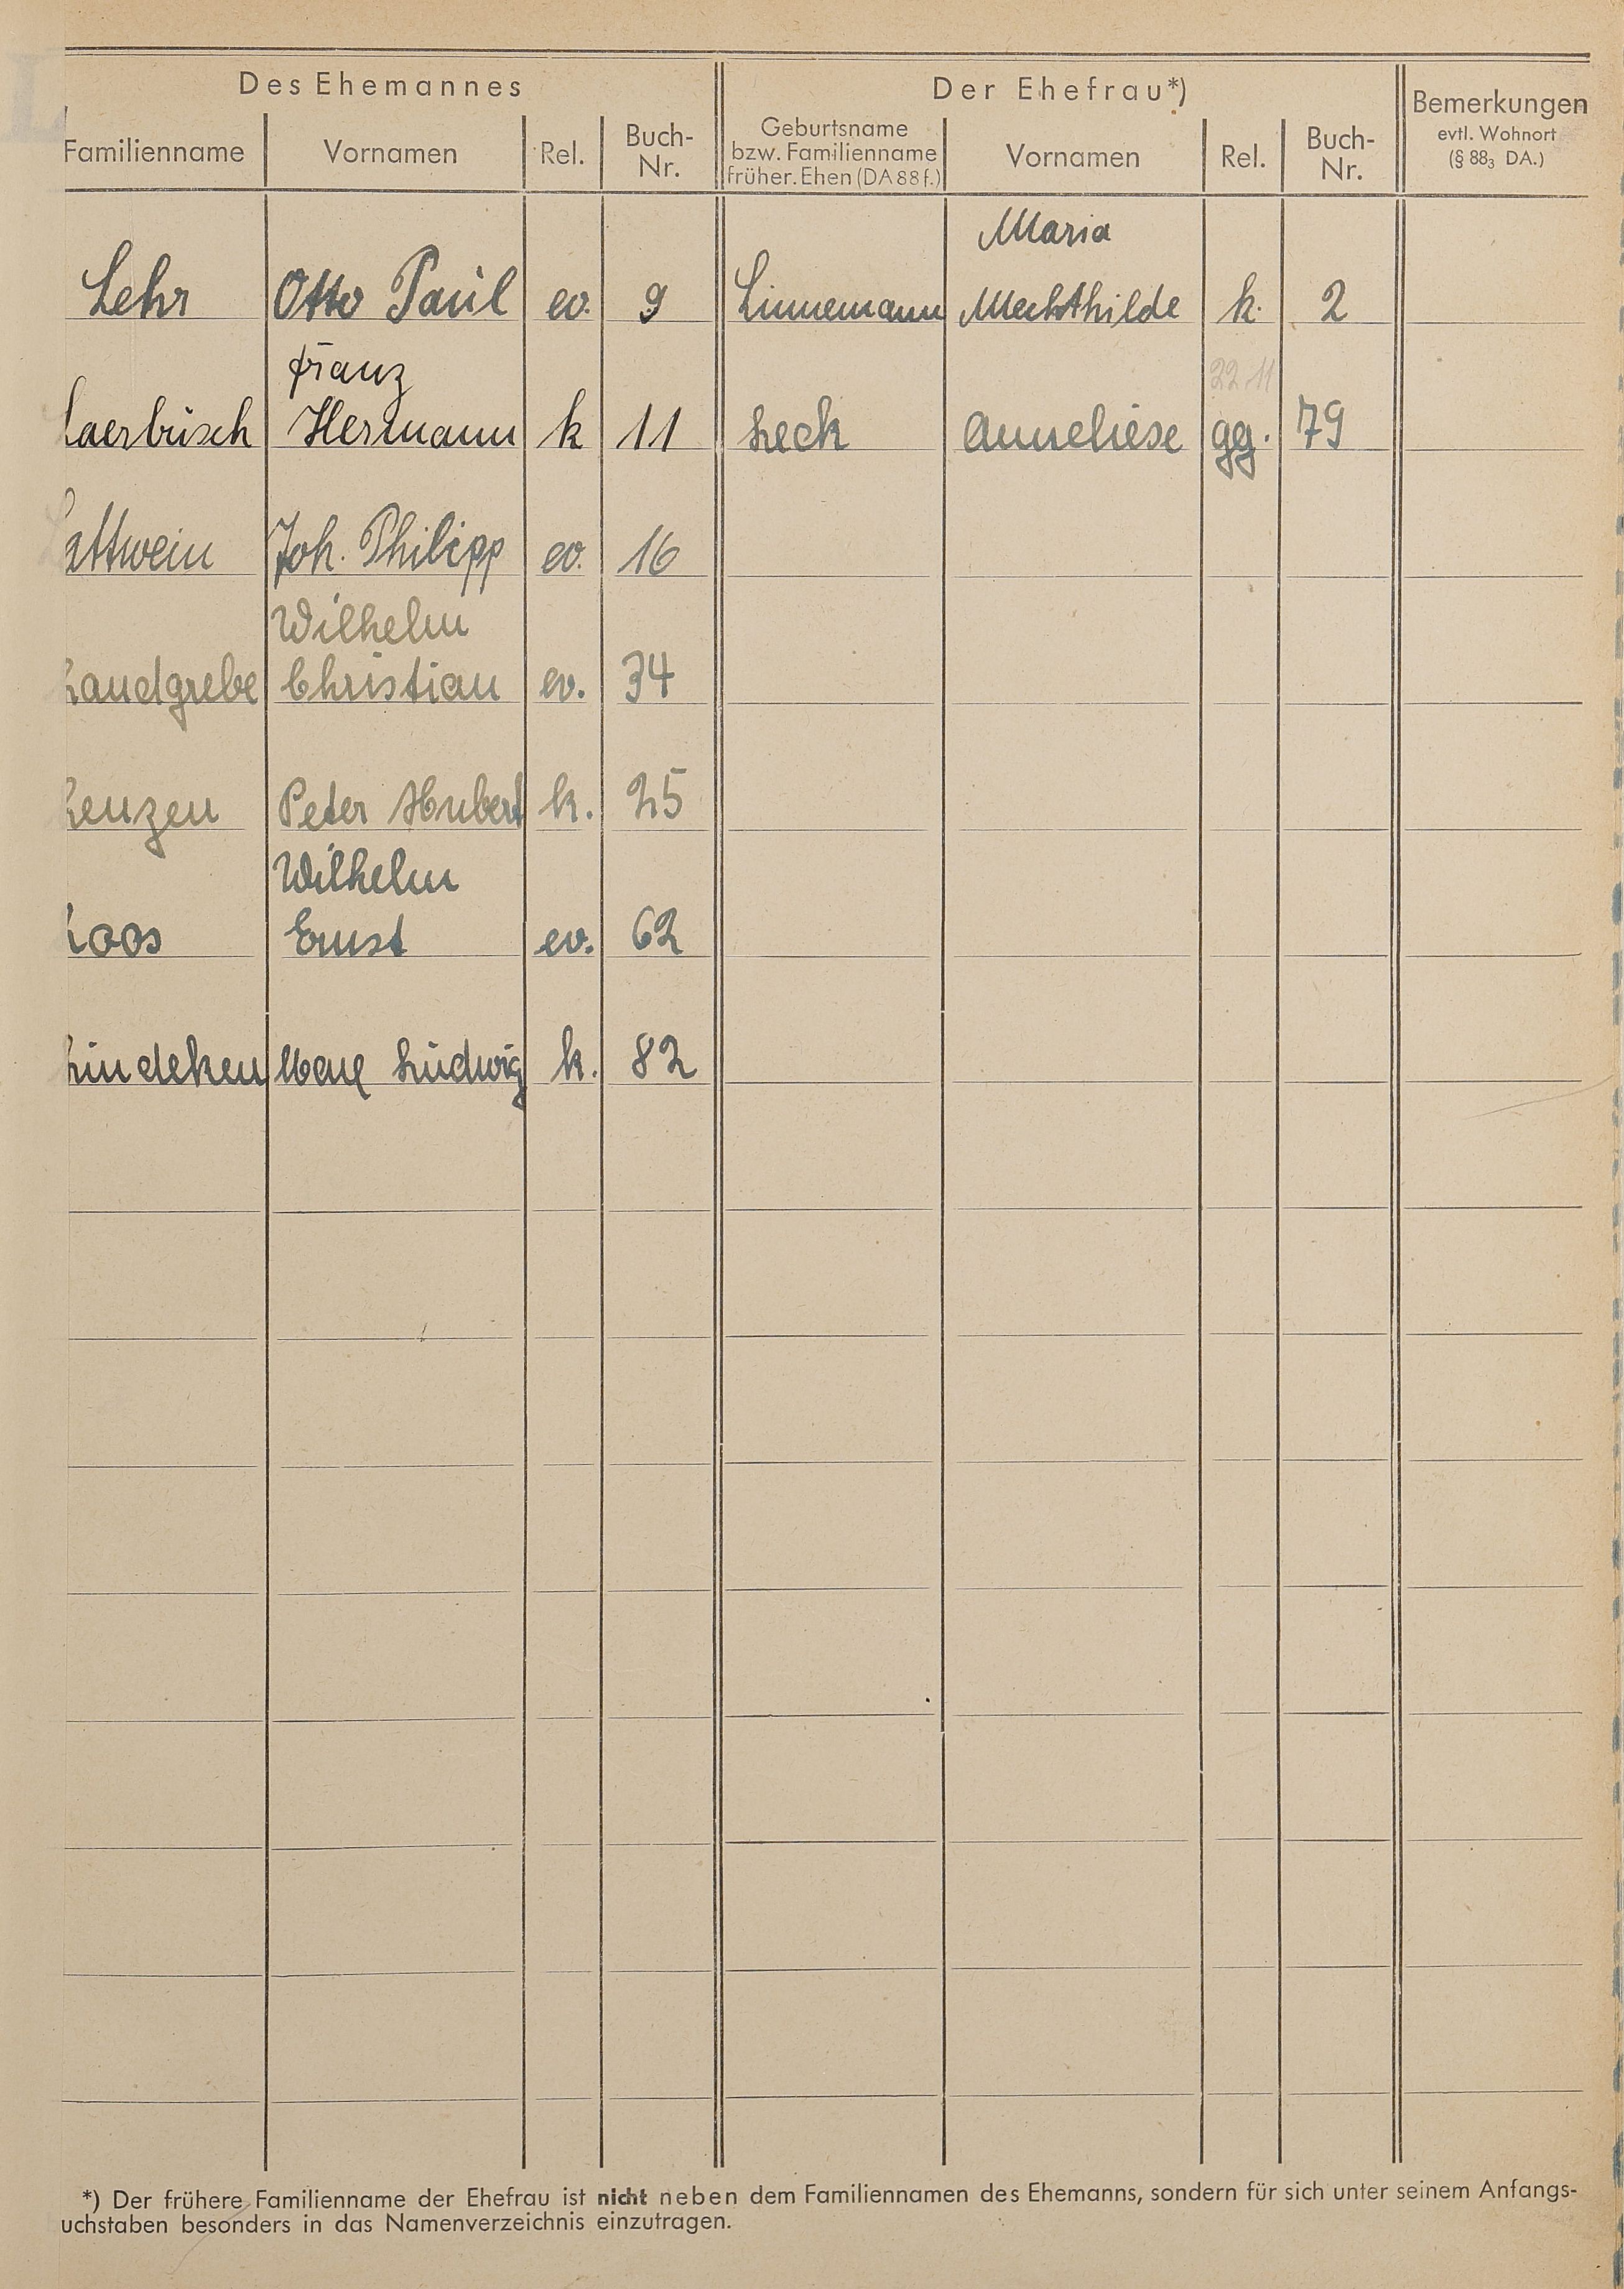 Des Ehemannes
Der Ehefrau*)
Bemerkungen
evtl. Wohnort
(§ 88₃ DA.)
Familienname
Vornamen
Rel.
Buch-
Nr.
Geburtsname
bzw. Familienname
früher. Ehen (DA 88 f.)
Vornamen
Rel.
Buch-
Nr.
Maria
Lehr Otto Paul ev. 9 Linnemann Mechthilde k. 2
Franz 22 11
Laerbusch Hermann k 11 Leck Anneliese gg. 79
Lattwein Joh. Philipp ev. 16
Wilhelm
Landgrebe Christian ev. 34
Lenzen Peter Hubert k. 25
Wilhelm
Loos Ernst ev. 62
Lindeken Ludwig k. 82
*) Der frühere Familienname der Ehefrau ist nicht neben dem Familiennamen des Ehemanns, sondern für sich unter seinem Anfangs-
uchstaben besonders in das Namenverzeichnis einzutragen.